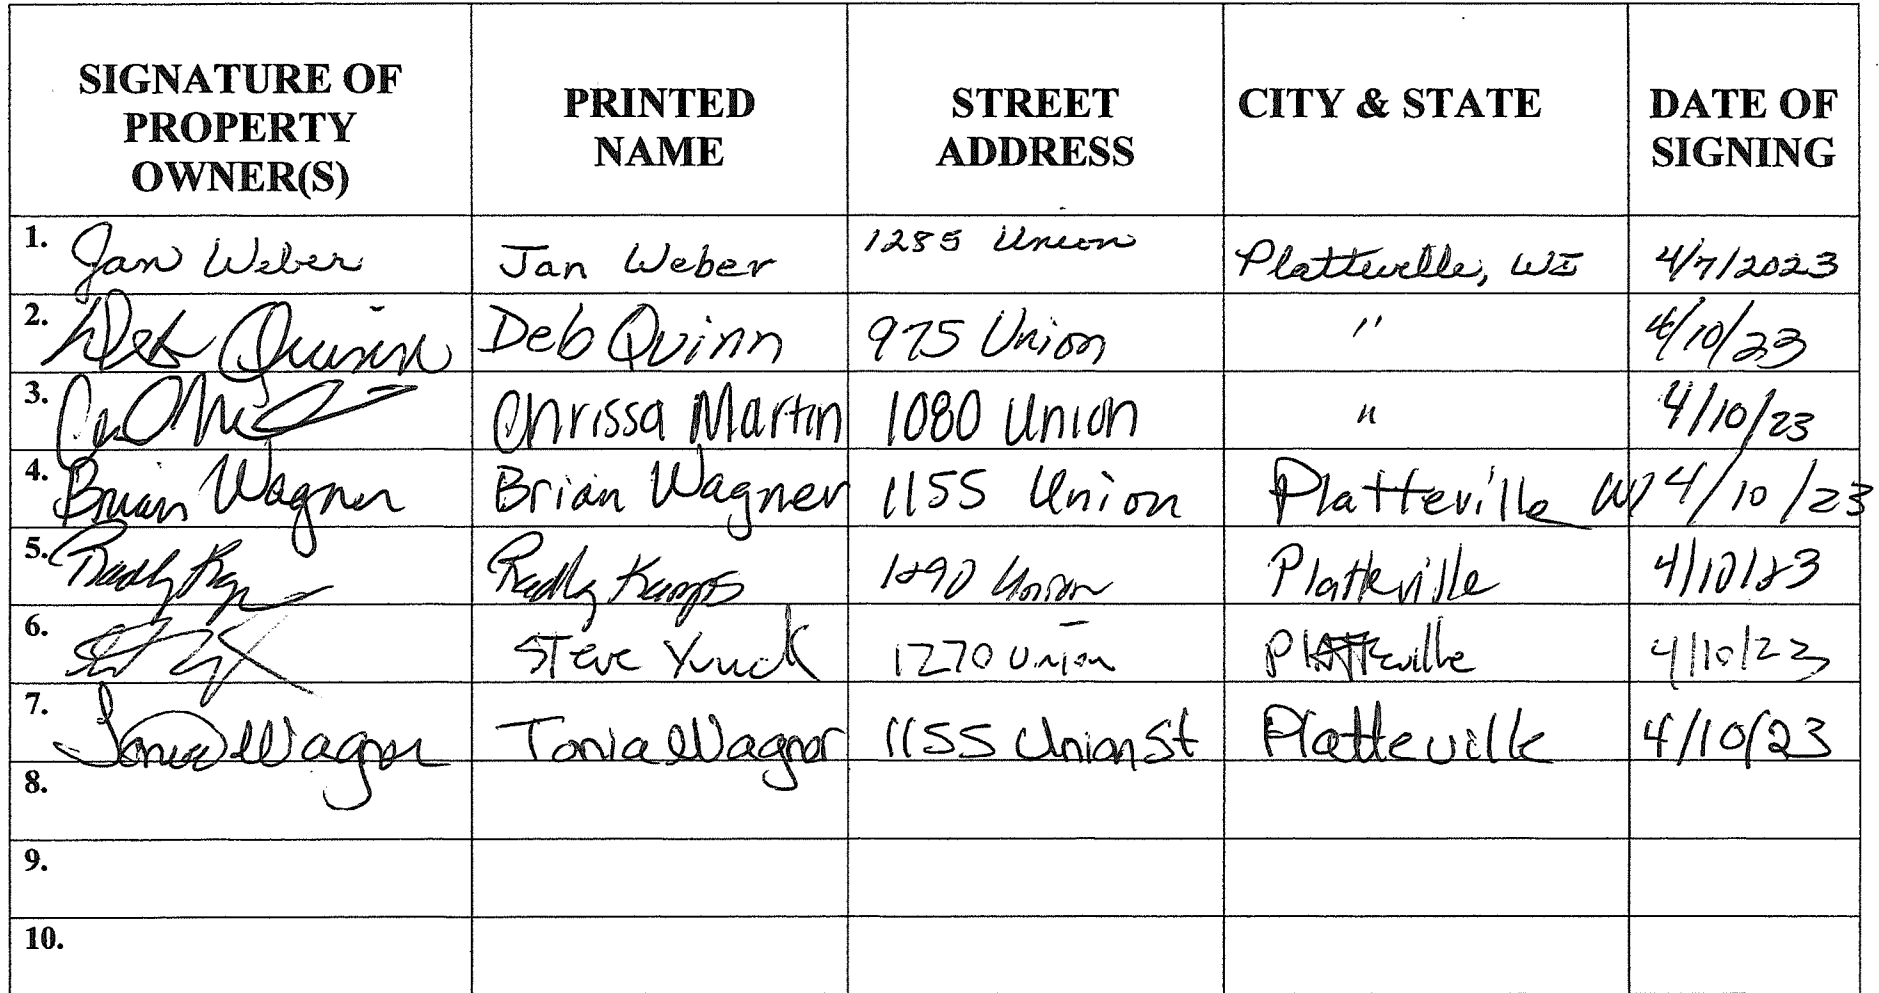 SIGNATURE OF PROPERTY OWNER(S) PRINTED NAME STREET ADDRESS CITY & STATE DATE OF SIGNING
1. Jan Weber Jan Weber 1285 Union Platteville, WI 4/7/2023
2. Deb Quinn Deb Quinn 975 Union " 4/10/23
3. Chrissa Martin 1080 Union " 4/10/23
4. Brian Wagner Brian Wagner 1155 Union Platteville WI 4/10/23
5. 1290 Union Platteville 4/10/23
6. Steve 1270 Union Platteville 4/10/23
7. Tonia Wagner Tonia Wagner 1155 Union St Platteville 4/10/23
8.
9.
10.